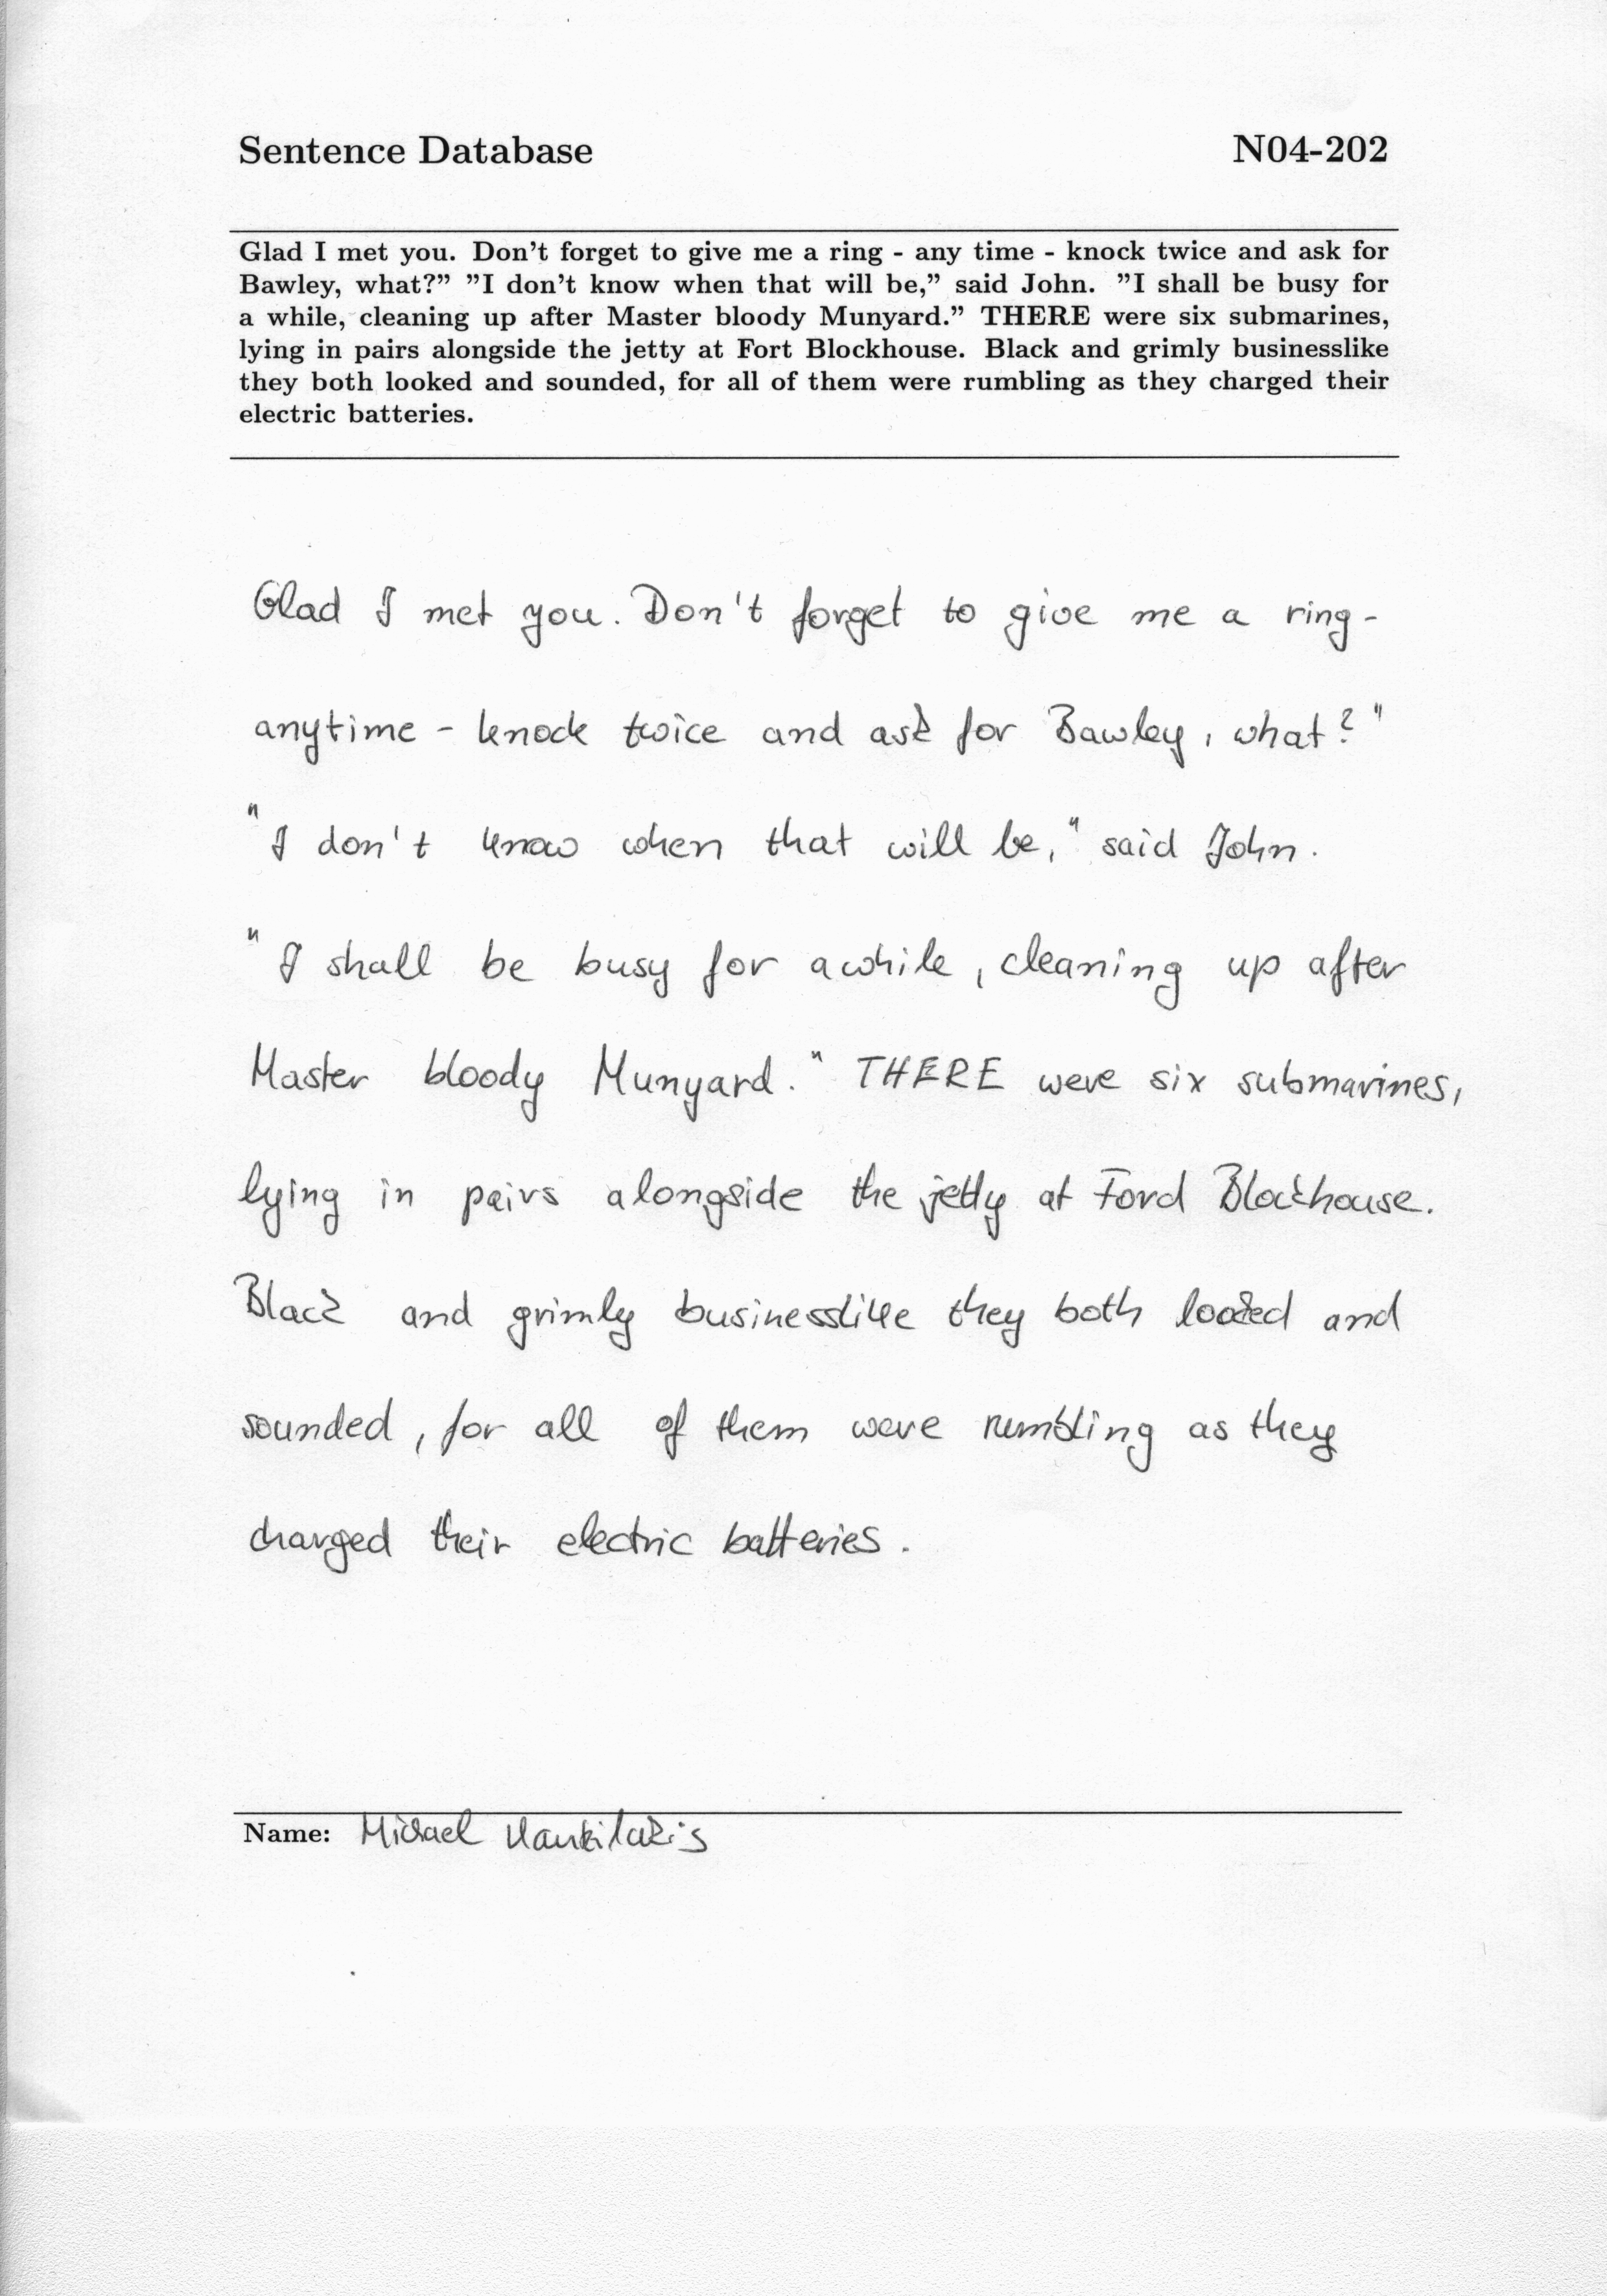 Sentence Database N04-202
Glad I met you. Don't forget to give me a ring - any time - knock twice and ask for
Bawley, what?" "I don't know when that will be," said John. "I shall be busy for
a while, cleaning up after Master bloody Munyard." THERE were six submarines,
lying in pairs alongside the jetty at Fort Blockhouse. Black and grimly businesslike
they both looked and sounded, for all of them were rumbling as they charged their
electric batteries.
Glad I met you. Don't forget to give me a ring -
anytime - knock twice and ask for Bawley, what?"
"I don't know when that will be," said John.
"I shall be busy for awhile, cleaning up after
Master bloody Munyard." THERE were six submarines,
lying in pairs alongside the jetty at Ford Blockhouse.
Black and grimly businesslike they both looked and
sounded, for all of them were rumbling as they
charged their electric batteries.
Name: Michael